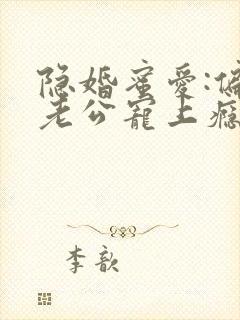 隐婚蜜爱:偏
老公宠上瘾
李歆